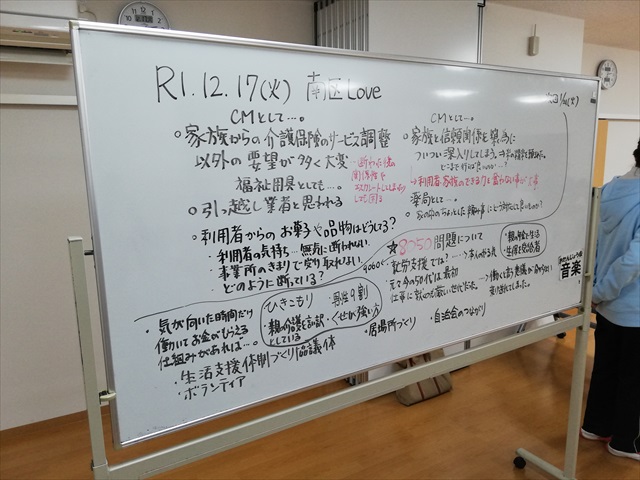 R1.12.17(火) 南区Love
CMとして…。
○家族からの介護保険のサービス調整
以外の要望が多く大変
福祉用具としても…。
○引っ越し業者と思われる
○利用者からのお菓子や品物はどうしてる?
・利用者の気持ち…無売に断われない。
・事業所のきまりで受り取れない。
どのように断っている?
・気が向いた時間だけ
働いてお金がもらえる
仕組みがあれば…。
ひきこもり
・男性9割
・親の介護を言訳
としている
・くせが強い方
・生活支援体制づくり協議体
・ボランティア
CMとして…。
○家族と信頼関係を築く為に
ついつい深入りしてしまう。
→利用者、家族のできる力を奪わない事が大事
薬局として…。
★8050問題について
9060
・就労支援では?
・親の年金で生活
・生産を受給者
・元々今の50代は最初
仕事に就くのも厳しい世代だった。
・居場所づくり
・自治会のつながり
音楽